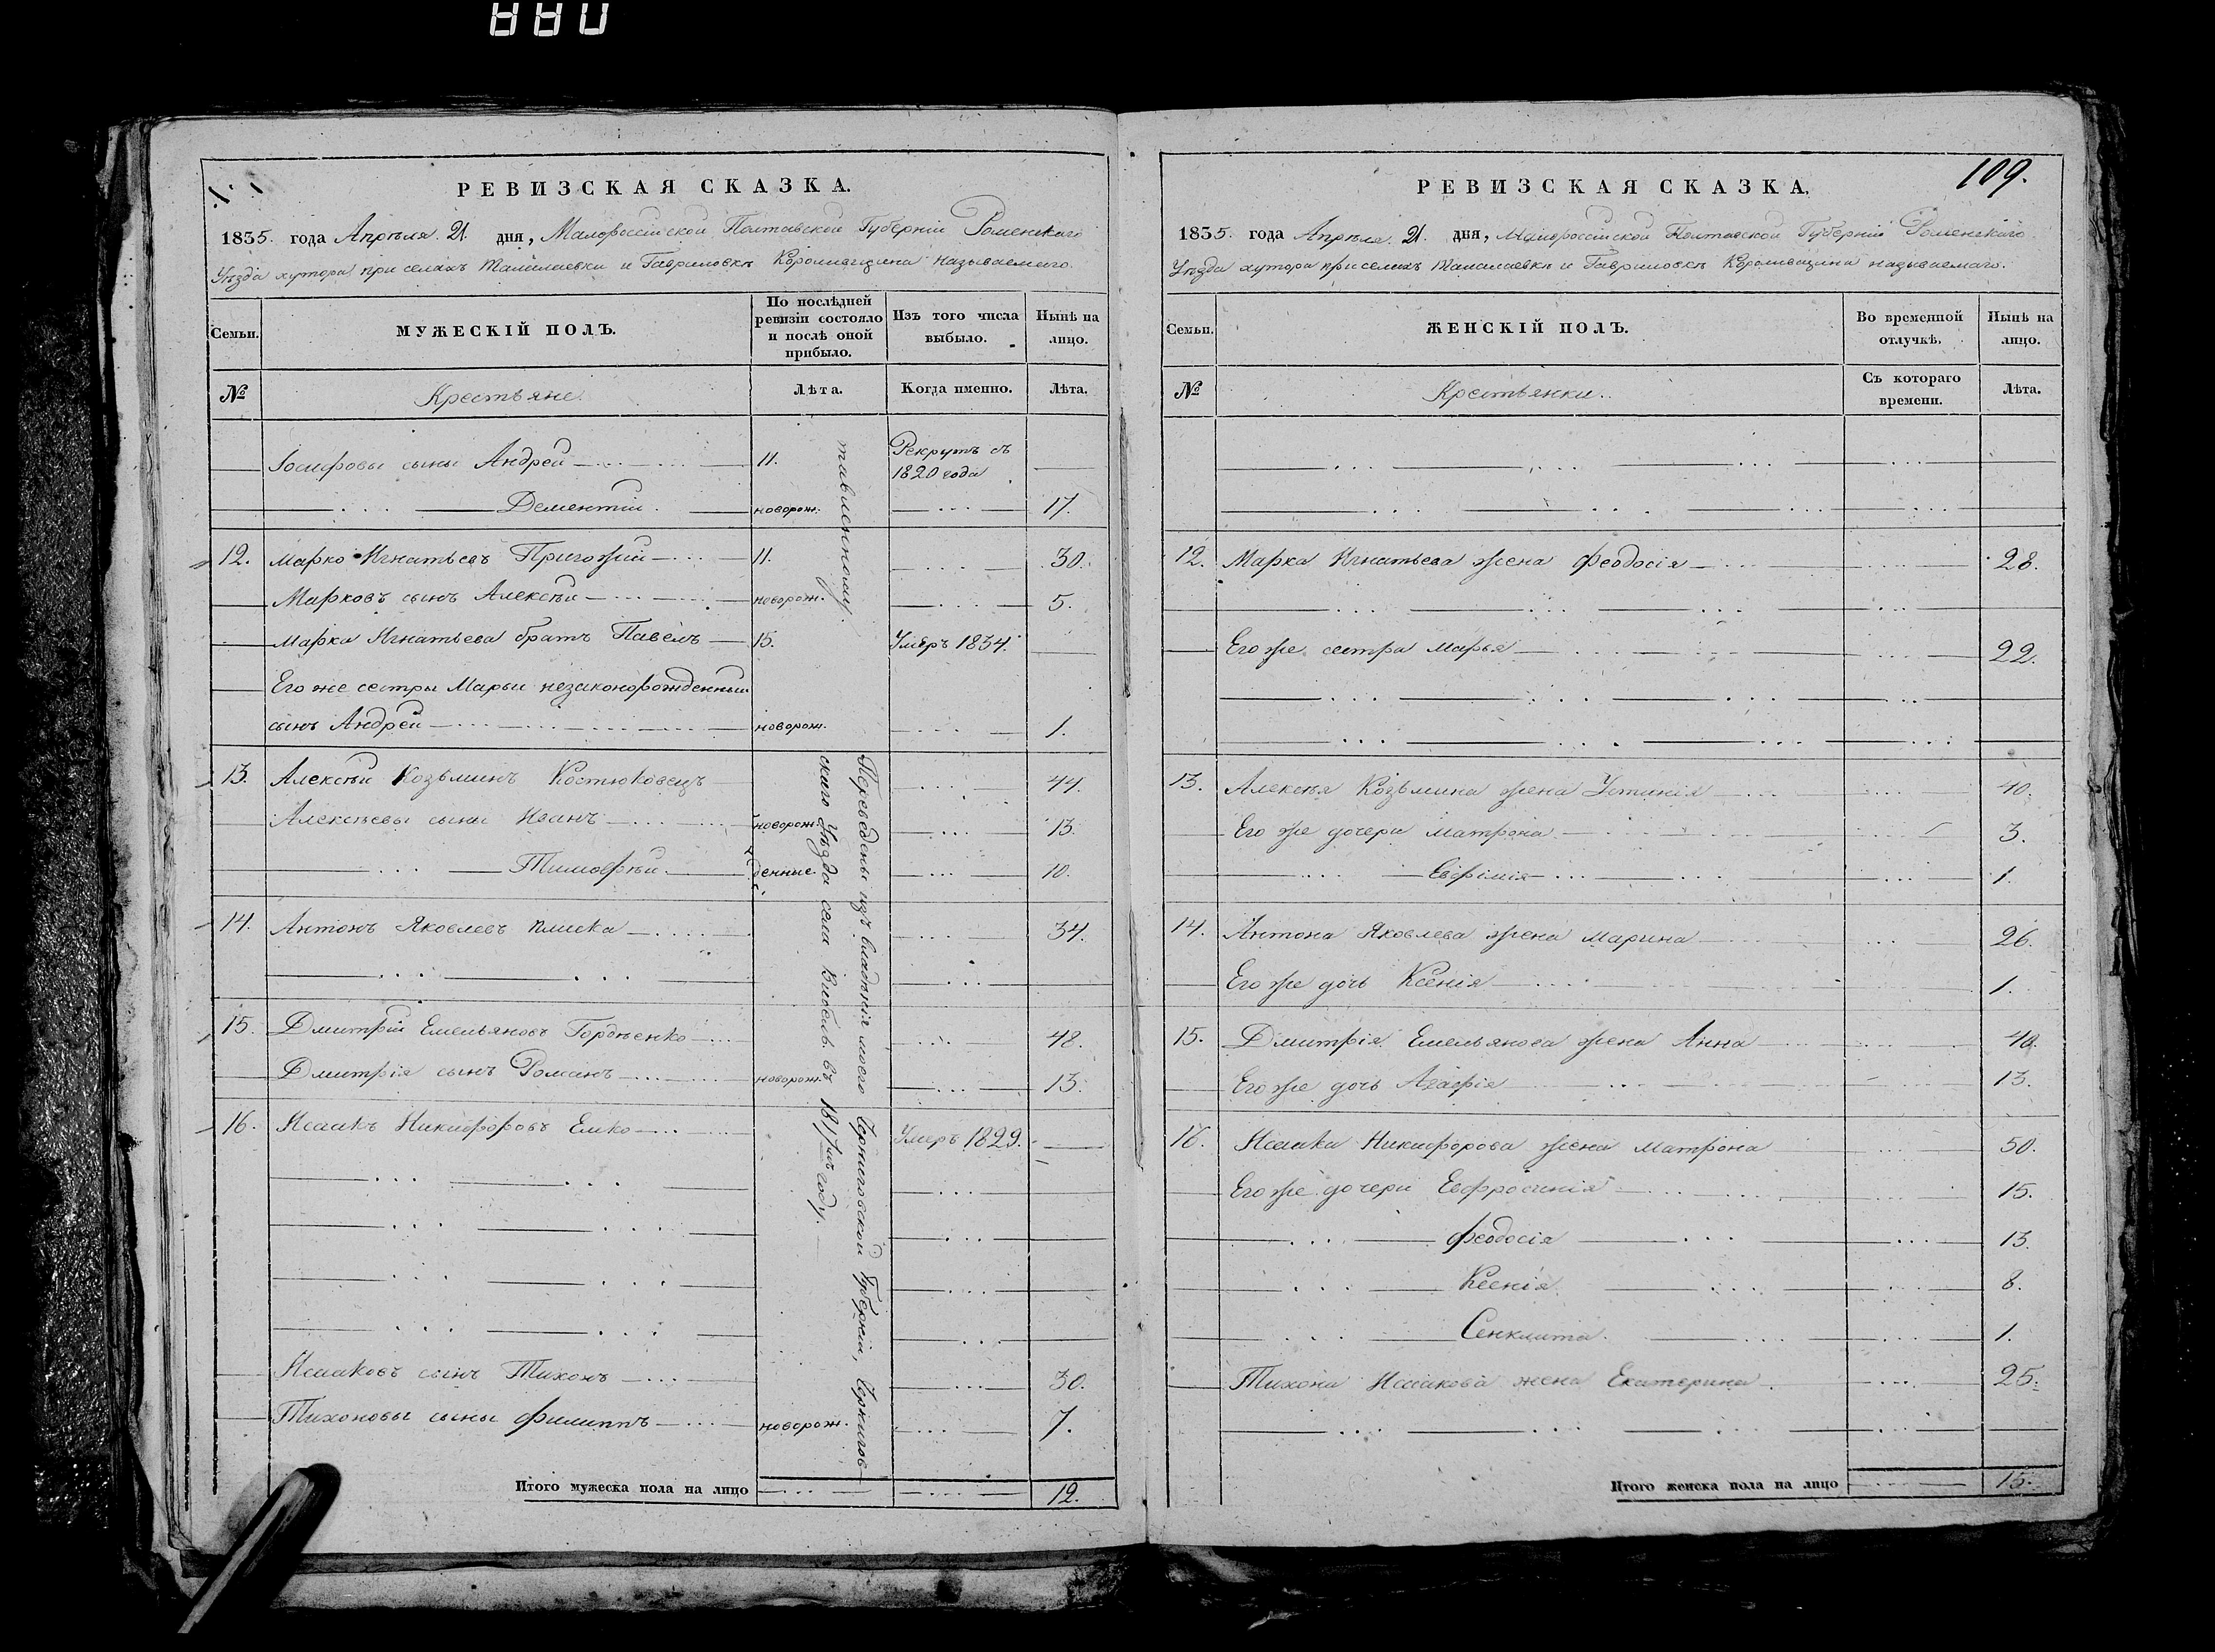 РЕВИЗСКАЯ СКАЗКА.
1835. года Апрѣля 21. дня, Малороссійской Полтавской Губерніи Роменскаго
Уѣзда хутора при селахъ Талалаевки и Гавриловкѣ Королившина называемаго.
Семьи.
МУЖЕСКІЙ ПОЛЪ.
По послѣдней ревизіи состояло и послѣ оной прибыло.
Изъ того числа выбыло.
Нынѣ на лицо.
№ Крестьяне Лѣта. Когда именно. Лѣта.
Іосифовы сыны Андрей 11. Рекрутъ съ 1820 года
Дементій новорож. 17.
12. Марко Игнатьевъ Пригожий 11. 30.
Марковъ сынъ Алексѣй новорож. 5.
Марка Игнатьева братъ Павелъ 15. Умеръ 1834.
Его же сестры Марьи незаконорожденный
сынъ Андрей новорож. 1.
тавленному.
13. Алексѣй Козьминъ Костюковецъ 44.
Алексѣевы сыны Иванъ новорож- 13.
Тимофѣй денные 10.
14. Антонъ Яковлевъ Плиска 34.
15. Дмитрій Емельяновъ Гордѣенко 48.
Дмитрія сынъ Романъ новорож. 13.
16. Исаакъ Никифоровъ Емко Умеръ 1829.
Исааковъ сынъ Тихонъ 30.
Тихоновы сыны Филиппъ новорож. 7.
Переведены изъ владѣнія моего Черниговской Губерніи, Чернигов-
скаго Уѣзда села въ 1817мъ году.
Итого мужеска пола на лицо 12.
109.
РЕВИЗСКАЯ СКАЗКА.
1835. года Апрѣля 21. дня, Малороссійской Полтавской Губерніи Роменскаго
Уѣзда хутора при селахъ Талалаевкѣ и Гавриловкѣ Королившина называемаго.
Семьи.
ЖЕНСКІЙ ПОЛЪ.
Во временной отлучкѣ.
Нынѣ на лицо.
№ Крестьянки. Съ котораго времени. Лѣта.
12. Марка Игнатьева жена Феодосія 28.
Его же сестра Марья 22.
13. Алексѣя Козьмина жена Устинія 40.
Его же дочери Матрона 3.
Евфимія 1.
14. Антона Яковлева жена Марина 26.
Его же дочь Ксенія 1.
15. Дмитрія Емельянова жена Анна 40.
Его же дочь Агафія 13.
16. Исаака Никифорова жена Матрона 50.
Его же дочери Евфросинія 15.
Феодосія 13.
Ксенія 8.
Сенклита 1.
Тихона Исаакова жена Екатерина 25.
Итого женска пола на лицо 15.